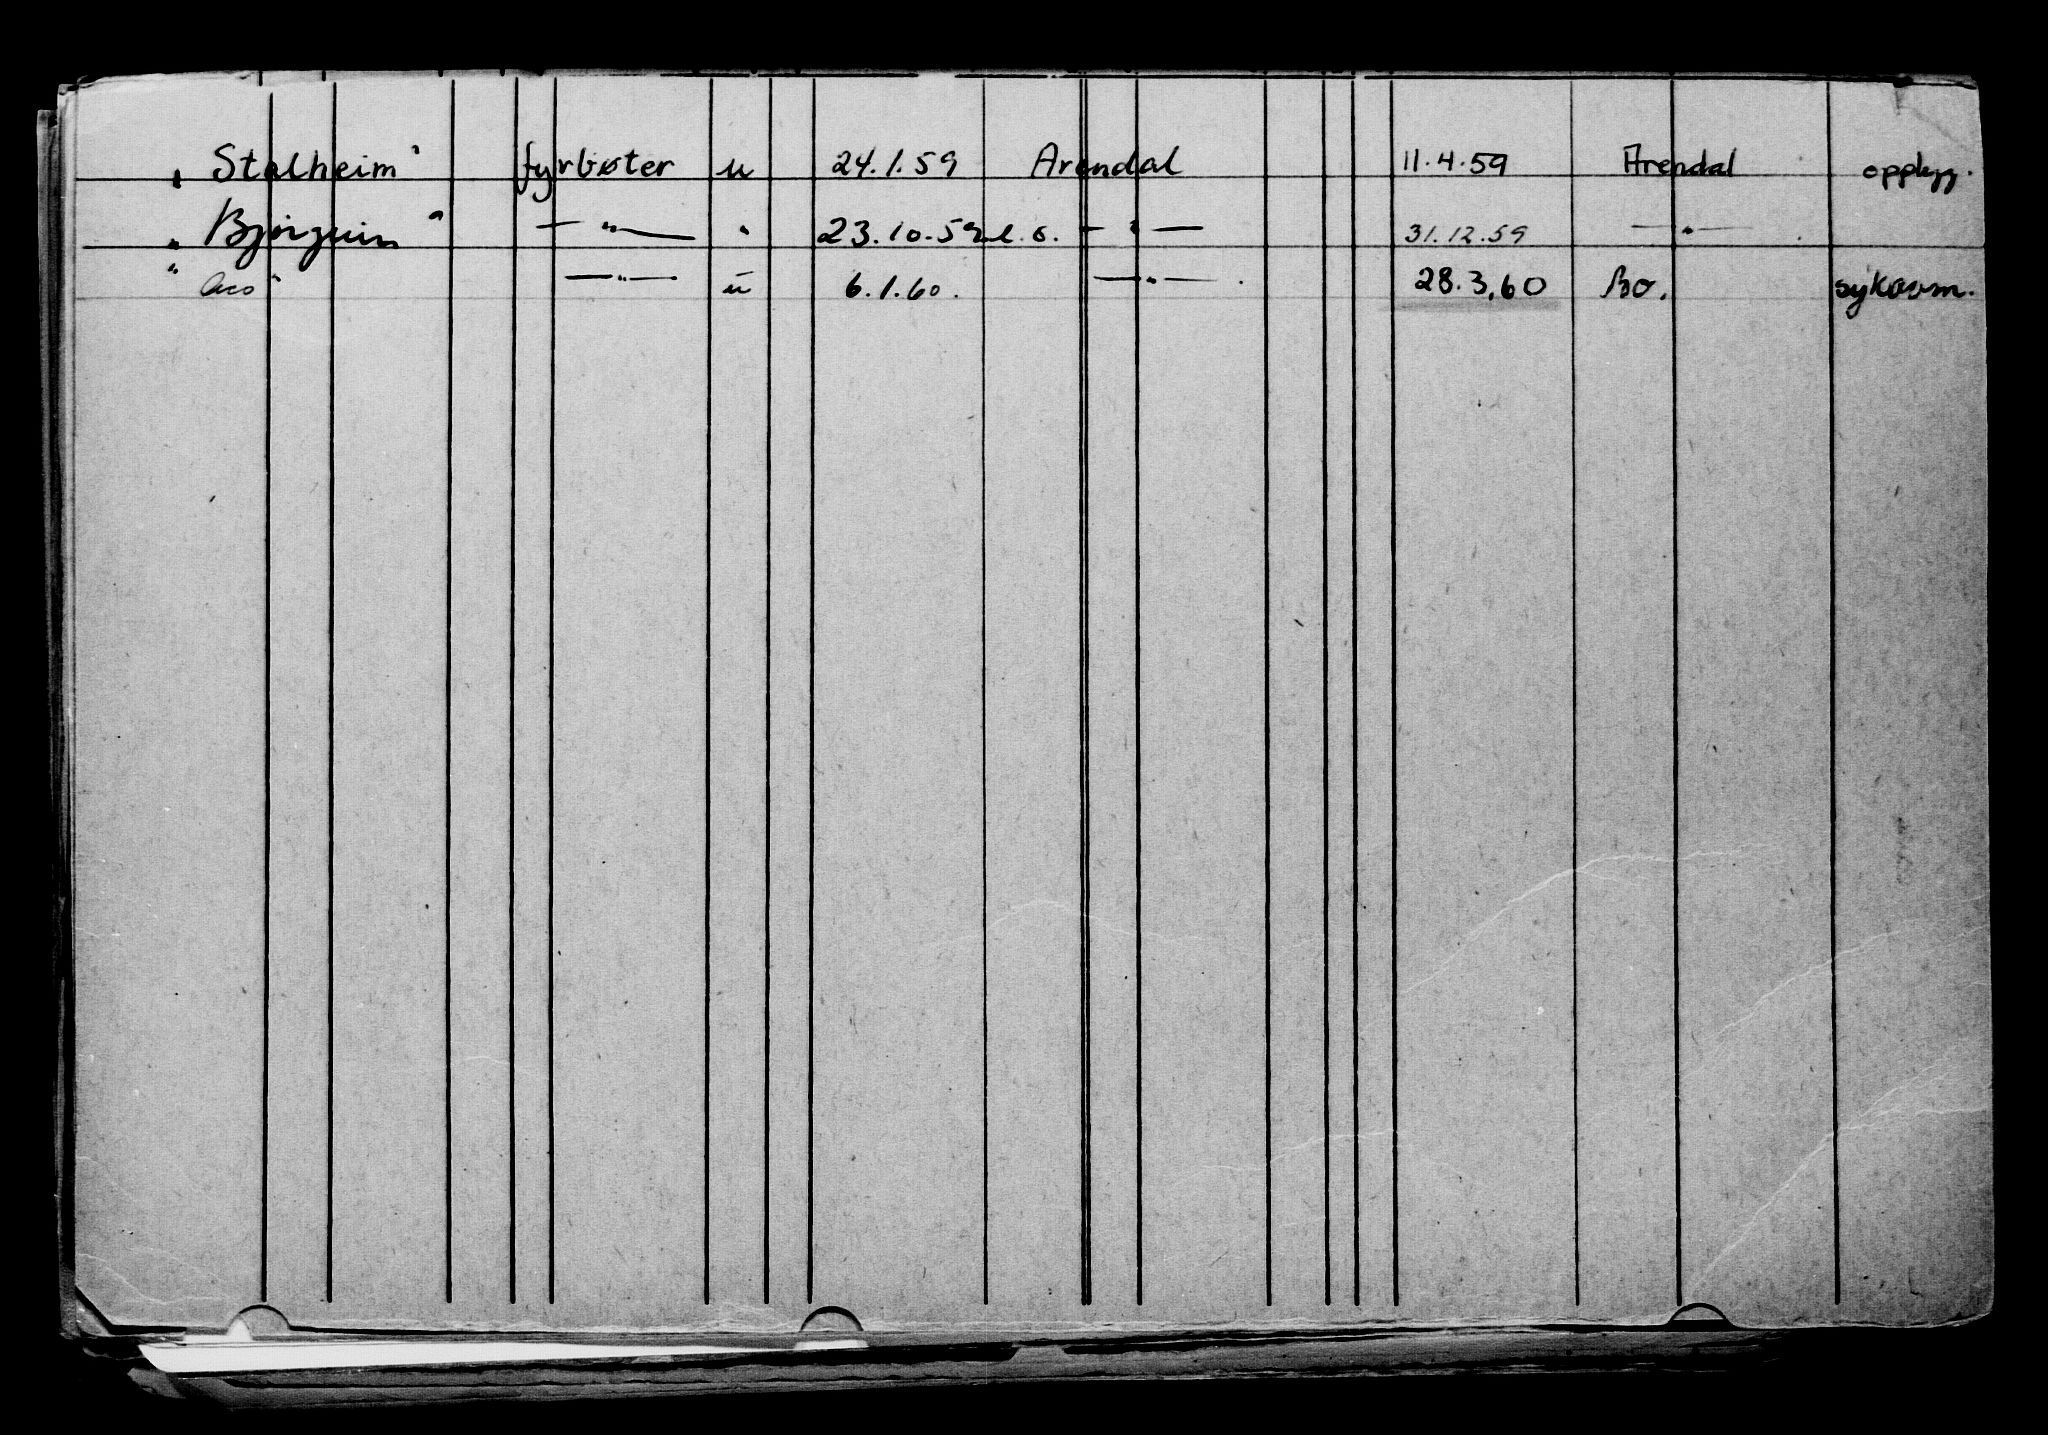 „ Stalheim" fyrbøter u 24.1.59 Arendal 11.4.59 Arendal opplegg.
„ Bjørgvin " — " — " 23.10.59 — " — 31.12.59 — " —
" — " — u 6.1.60. — " — 28.3.60 Bo. sykdom.